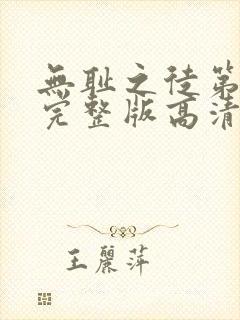 無耻之徒第
完整版高清
王麗萍